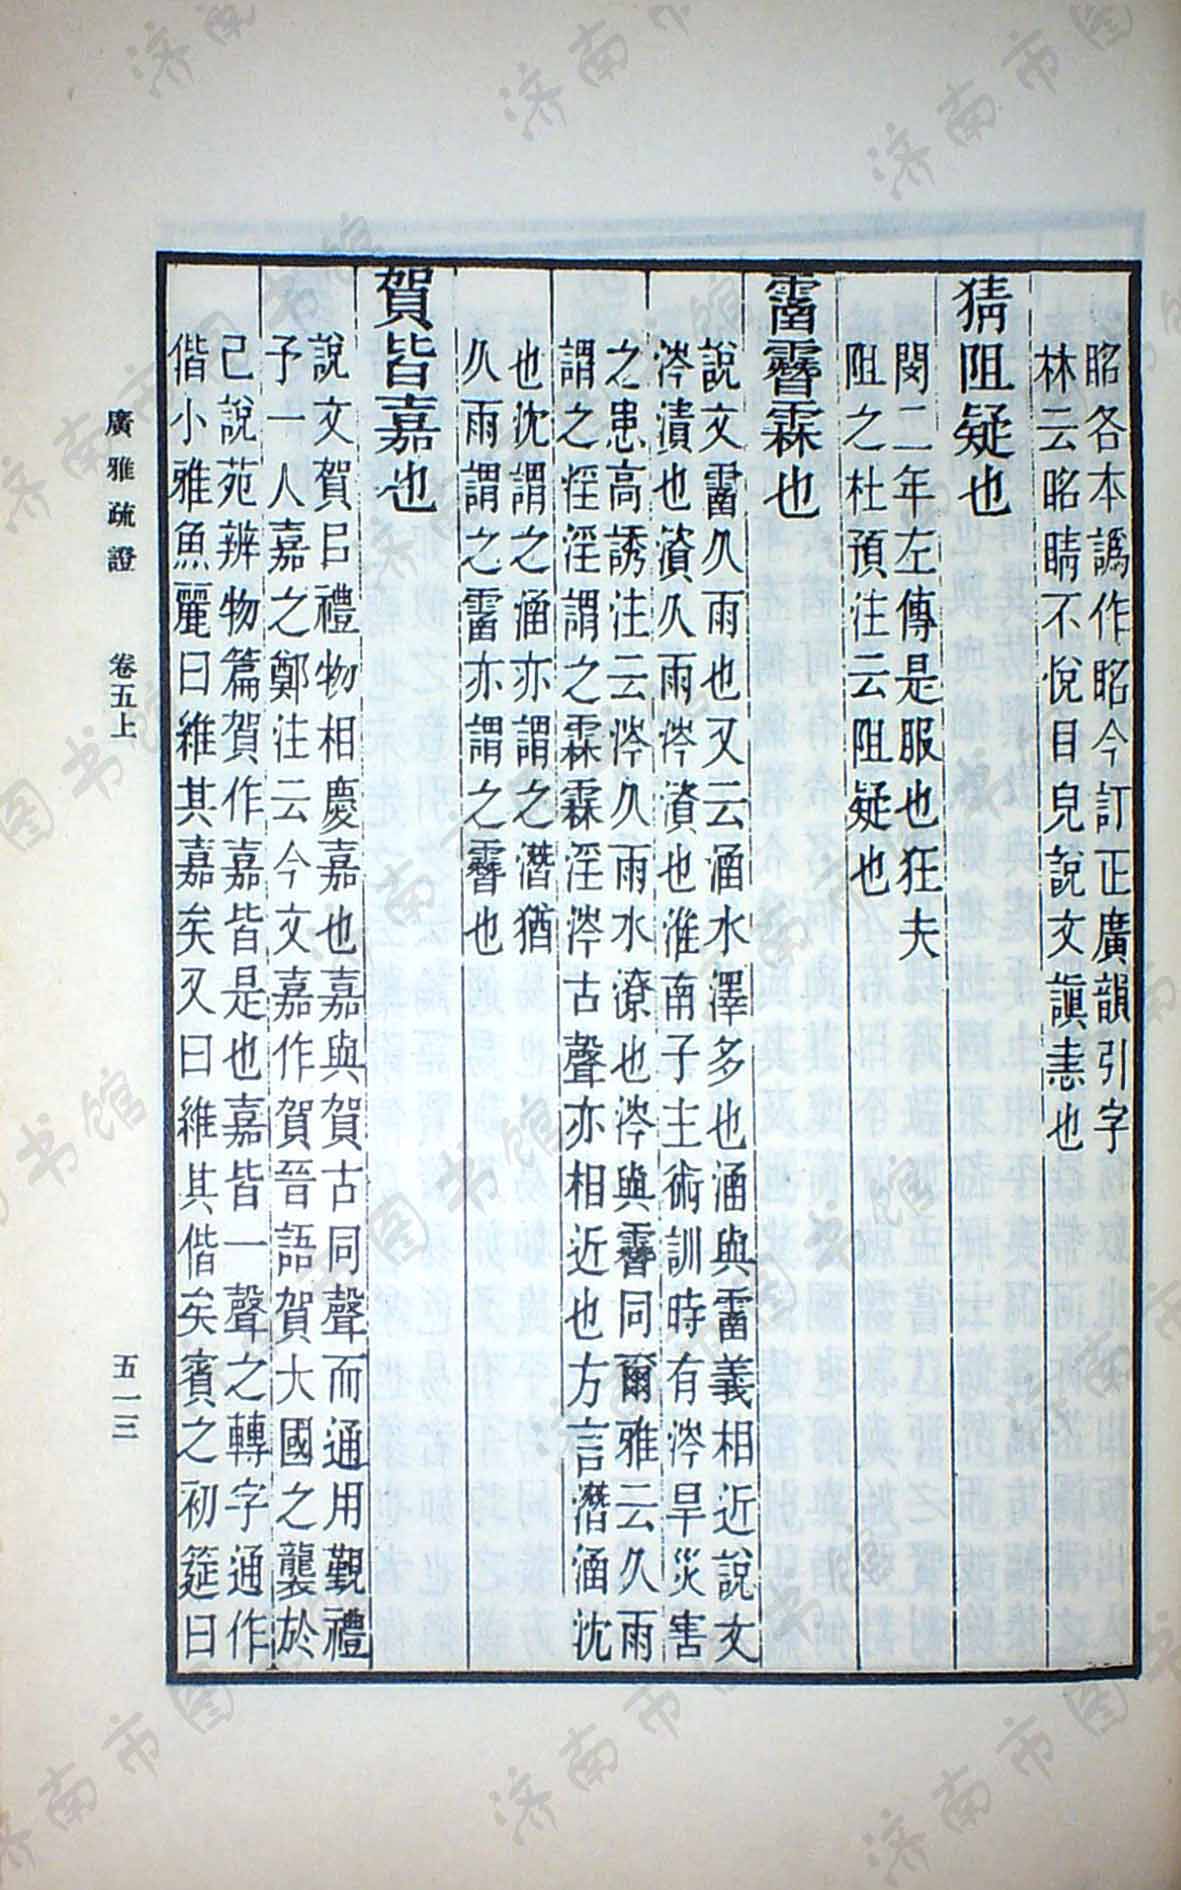 昭各本譌作昭今訂正廣韻引字
林云昭睛不悅目皃說文謓恚也
猜阻疑也
閔二年左傳是服也狂夫
阻之杜預注云阻疑也
霤霫霖也
說文霤久雨也又云涵水澤多也涵與霤義相近說文
涔漬也濱久雨涔濱也淮南子主術訓時有涔旱災害
之患高誘注云涔久雨水潦也涔與霫同爾雅云久雨
謂之淫淫謂之霖霖淫涔古聲亦相近也方言潛涵沈
也沈謂之涵亦謂之潛猶
久雨謂之霤亦謂之霫也
賀皆嘉也
說文賀㠯禮物相慶嘉也嘉與賀古同聲而通用覲禮
予一人嘉之鄭注云今文嘉作賀晉語賀大國之襲於
己說苑辨物篇賀作嘉皆是也嘉皆一聲之轉字通作
偕小雅魚麗曰維其嘉矣又曰維其偕矣賓之初筵曰
廣雅疏證 卷五上 五一三